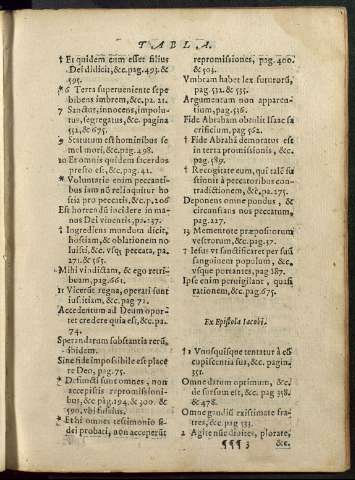 TABLA.
5 Et quidem cùm esset filius
Dei didicit, &c. pag. 493. &
595.
6 Terra superueniente sepe
bibens imbrem, &c. pa. 21.
7 Sanctus, innocens, impolu-
tus, segregatus, &c. pagina
531, & 675.
9 Statutum est hominibus se
mel mori, &c. pag. 298.
10 Et omnis quidem sacerdos
presto est, &c. pag. 41.
Voluntariè enim peccanti-
bus iam nō relinquitur ho
stia pro peccatis, &c. p. 206
Est horrendū incidere in ma-
nos Dei viuentis, pa. 237.
Ingrediens mundum dicit,
hostiam, & oblationem no
luisti, &c. vsq; peccata, pa.
271. & 565.
Mihi vindictam, & ego retri
buam, pag. 661.
11 Vicerūt regna, operati sunt
iustitiam, &c pag 72.
Accedentem ad Deum opor-
tet credere quia est, &c. pa.
74.
Sperandarum substantia rerū.
ibidem.
Sine fide impossibile est place
re Deo, pag. 75.
Defuncti sunt omnes, non
acceptis repromissioni-
bus, &c pag. 194. & 300. &
590. vbi fusius.
Et hi omnes testimonio fi-
dei probati, non acceperūt
repromissiones, pag. 400.
& 503.
Vmbram habet lex futurorū,
pag. 531. & 535.
Argumentum non apparen-
tium, pag. 536.
Fide Abraham obtulit Isaac sa
crificium, pag 562.
Fide Abrahā demoratus est
in terra promissionis, &c.
pag. 589.
Recogitate eum, qui talē su
stinuit à peccatoribus con-
tradictionem, &c. pa. 275.
Deponens omne pondus, &
circunstans nos peccatum,
pag. 227.
13 Mementote præpositorum
vestrorum, &c. pag. 57.
7 Iesus vt sanctificaret per suū
sanguinem populum, &c.
vsque portantes, pag 287.
Ipse enim peruigilant, quasi
rationem, &c. pag. 675.
Ex Epistola Iacobi.
1 Vnusquisque tentatur à cō
cupiscentia sua, &c. pagin.
351.
Omne datum optimum, &c.
de sursum est, &c. pag 358.
& 478.
Omne gaudiū existimate fra-
tres, &c. pag 533.
2 Agite nūc diuites, plorate,
¶¶¶ 3 &c.